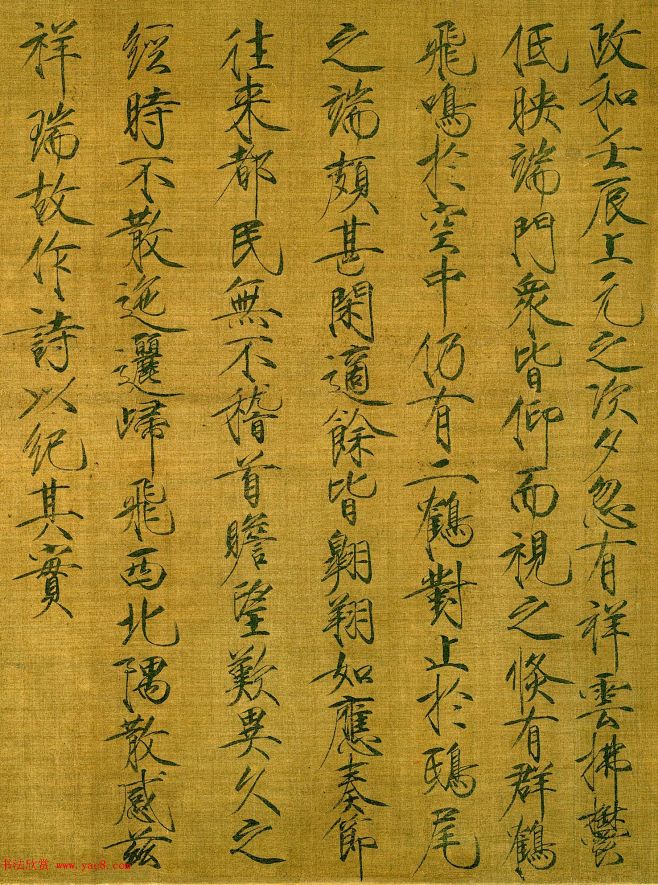 政和壬辰上元之次夕忽有祥雲拂鬱
低映端門衆皆仰而視之倐有群鶴
飛鳴於空中仍有二鶴對止於鴟尾
之端頗甚閑適餘皆翱翔如應奏節
往来都民無不稽首瞻望歎異久之
經時不散迤邐歸飛西北隅散感兹
祥瑞故作詩以紀其實
书法欣赏 www.yac8.com